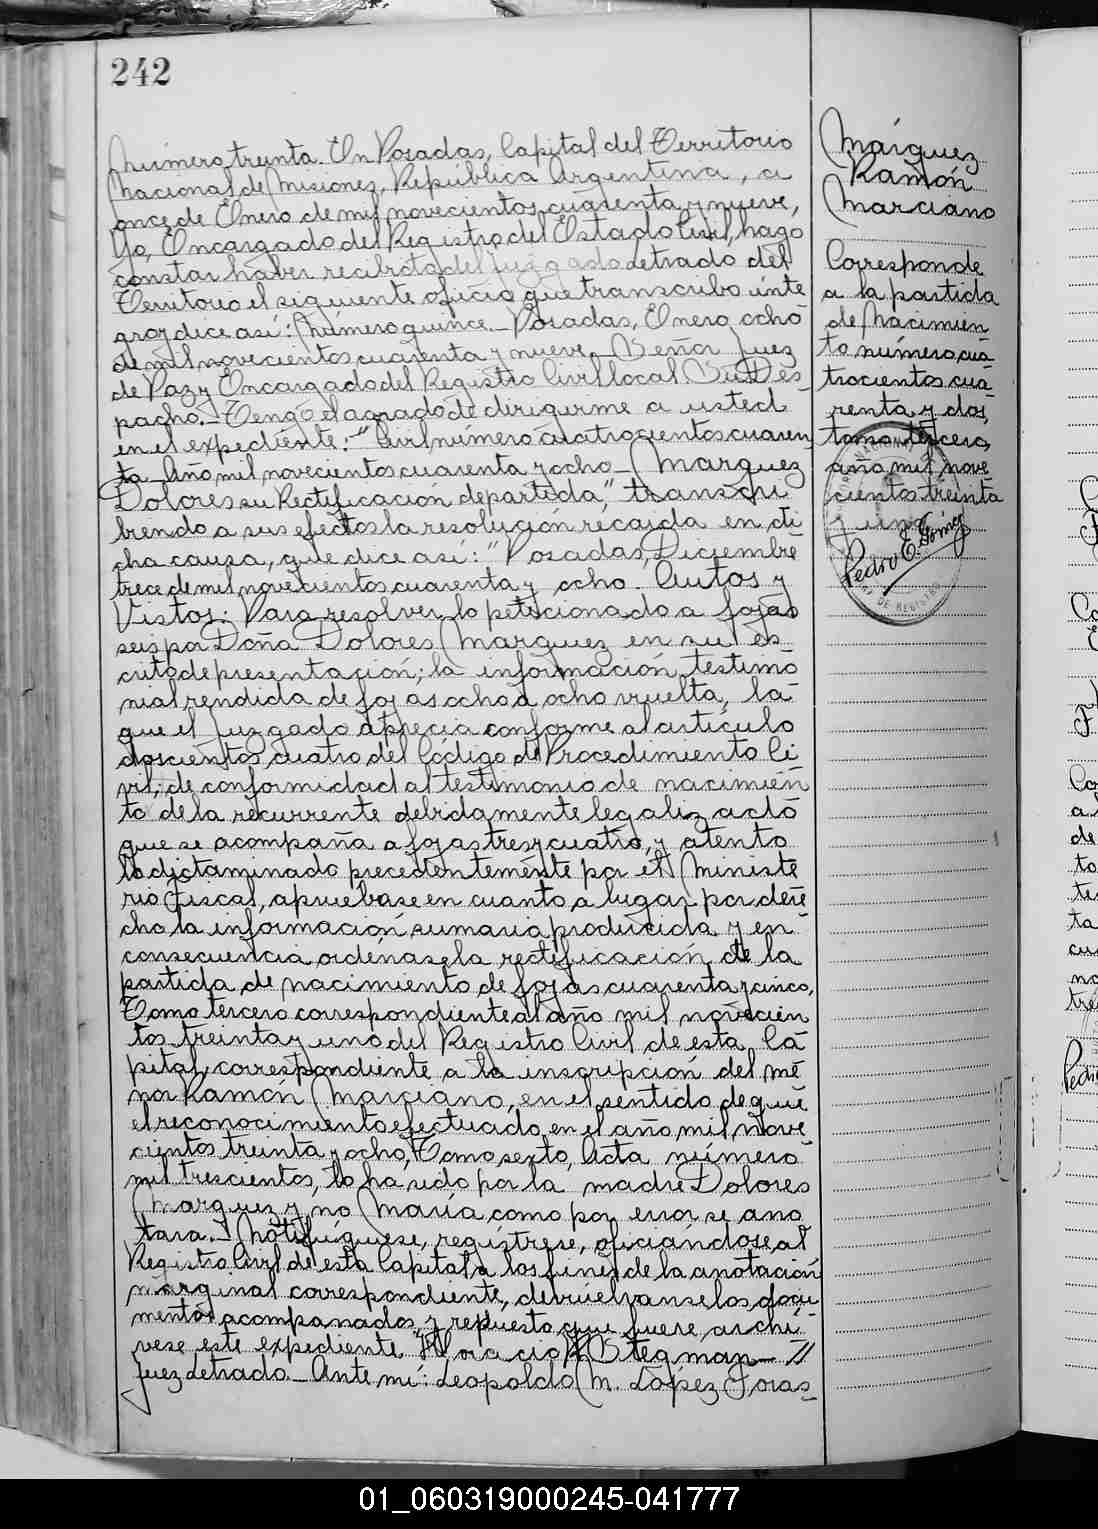 242
Número treinta. En Posadas, Capital del Territorio
Nacional de Misiones, República Argentina, a
once de Enero de mil novecientos cuarenta y nueve,
Yo, Encargado del Registro del Estado Civil, hago
constar haber recibido del juzgado letrado del
Territorio el siguiente oficio que transcribo inte
gro y dice así: Número quince._ Posadas, Enero ocho
de mil novecientos cuarenta y nueve._ Señor Juez
de Paz y Encargado del Registro Civil local Su Des_
pacho._ Tengo el agrado de dirigirme a usted
en el expediente: "Civil número cuatrocientos cuaren
ta_ Año mil novecientos cuarenta y ocho_ Marquez
Dolores su Rectificación de partida", transcri
briendo a sus efectos la resolución recaida en di
cha causa, que dice así: "Posadas, Diciembre
trece de mil novecientos cuarenta y ocho. Autos y
Vistos: Para resolver lo peticionado a fojas
seis por Doña Dolores Marquez en su es
crito de presentación; la información testimo
nial rendida de fojas ocho a ocho vuelta, la
que el juzgado aprecia conforme al artículo
doscientos cuatro del Código de Procedimiento Ci
vil; de conformidad al testimonio de nacimien
to de la recurrente debidamente legalizado
que se acompaña a fojas tres y cuatro, y atento
lo dictaminado precedentemente por el Ministe
rio Fiscal, apruébase en cuanto a lugar por dere
cho la información sumaria producida y en
consecuencia ordénase la rectificación de la
partida de nacimiento de fojas cuarenta y cinco,
Tomo tercero correspondiente al año mil novecien
tos treinta y uno del Registro Civil de esta Ca
pital, correspondiente a la inscripción del me
nor Ramón Marciano, en el sentido de que
el reconocimiento efectuado en el año mil nove
cientos treinta y ocho, Tomo sexto, Acta número
mil trescientos, lo ha sido por la madre Dolores
Marquez y no María como por error se ano
tara. Notifíquese, regístrese, oficiandose al
Registro Civil de esta Capital a los fines de la anotación
marginal correspondiente, devuelvanse los docu_
mentos acompañados, y repuesto que fuere archi
vese este expediente. Horacio Stegman_ //
Juez Letrado._ Ante mí: Leopoldo M. López Foras_
Márquez
Ramón
Marciano
Corresponde
a la partida
de Nacimien
to número cua
trocientos cua
renta y dos,
tomo tercero,
año mil nove
cientos treinta
y uno
Pedro E.
01_060319000245-041777